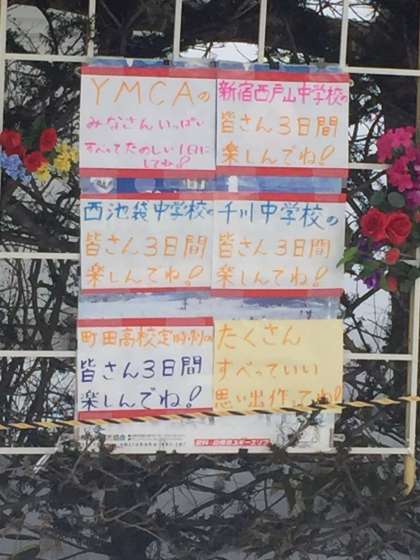 YMCAの
みなさんいっぱい
すべってたのしい1日に
してね!
新宿西戸山中学校の
皆さん3日間
楽しんでね!
西池袋中学校の
皆さん3日間
楽しんでね!
千川中学校の
皆さん3日間
楽しんでね!
町田高校定時制の
皆さん3日間
楽しんでね!
たくさん
すべっていい
思い出作ってね!